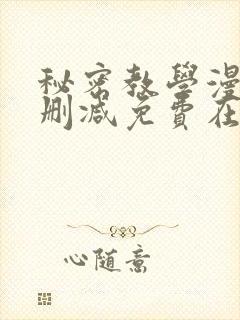 秘密教學漫
刪減免費在
心随意